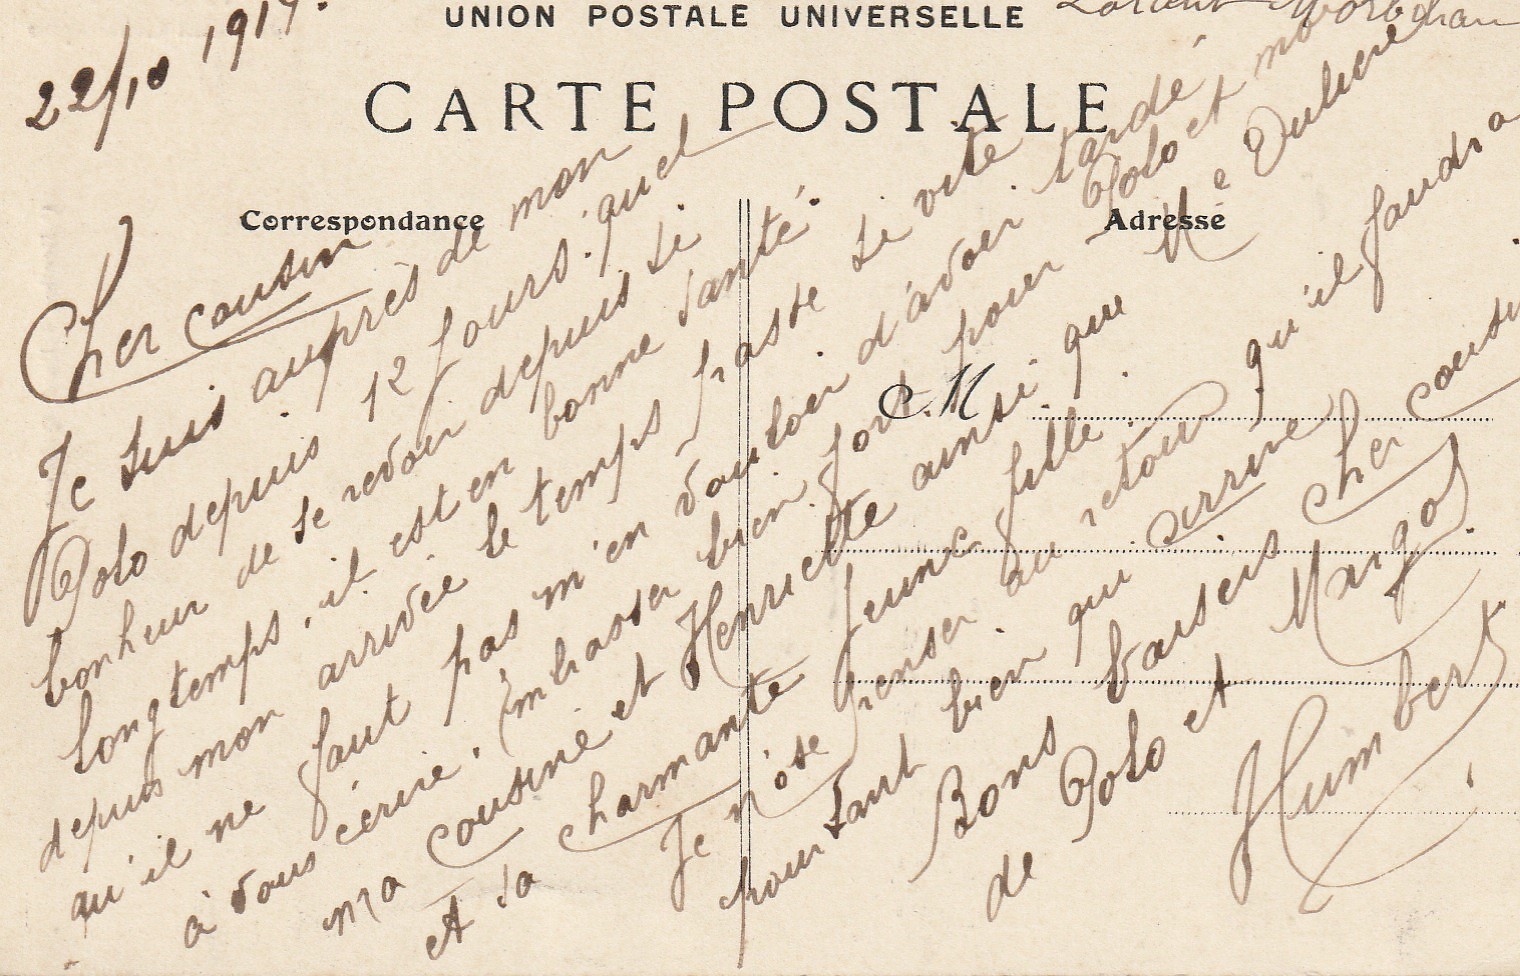 UNION POSTALE UNIVERSELLE
22/10 1917.
Lorient Morbihan
CARTE POSTALE
Correspondance
Adresse
M
Cher cousin
Je suis auprès de mon
Polo depuis 12 jours. quel
bonheur de se revoir depuis si
longtemps, il est en bonne santé.
depuis mon arrivée le temps passe si vite
qu'il ne faut pas m'en vouloir d'avoir tardé
à vous écrire. Embrasser bien fort pour Polo et moi
ma cousine et Henriette ainsi que Me
et sa charmante jeune fille.
Je n'ose penser au retour qu'il faudra
pourtant bien qui arrive
Bons baisers cher cousin
de Polo et Margot
Humbert